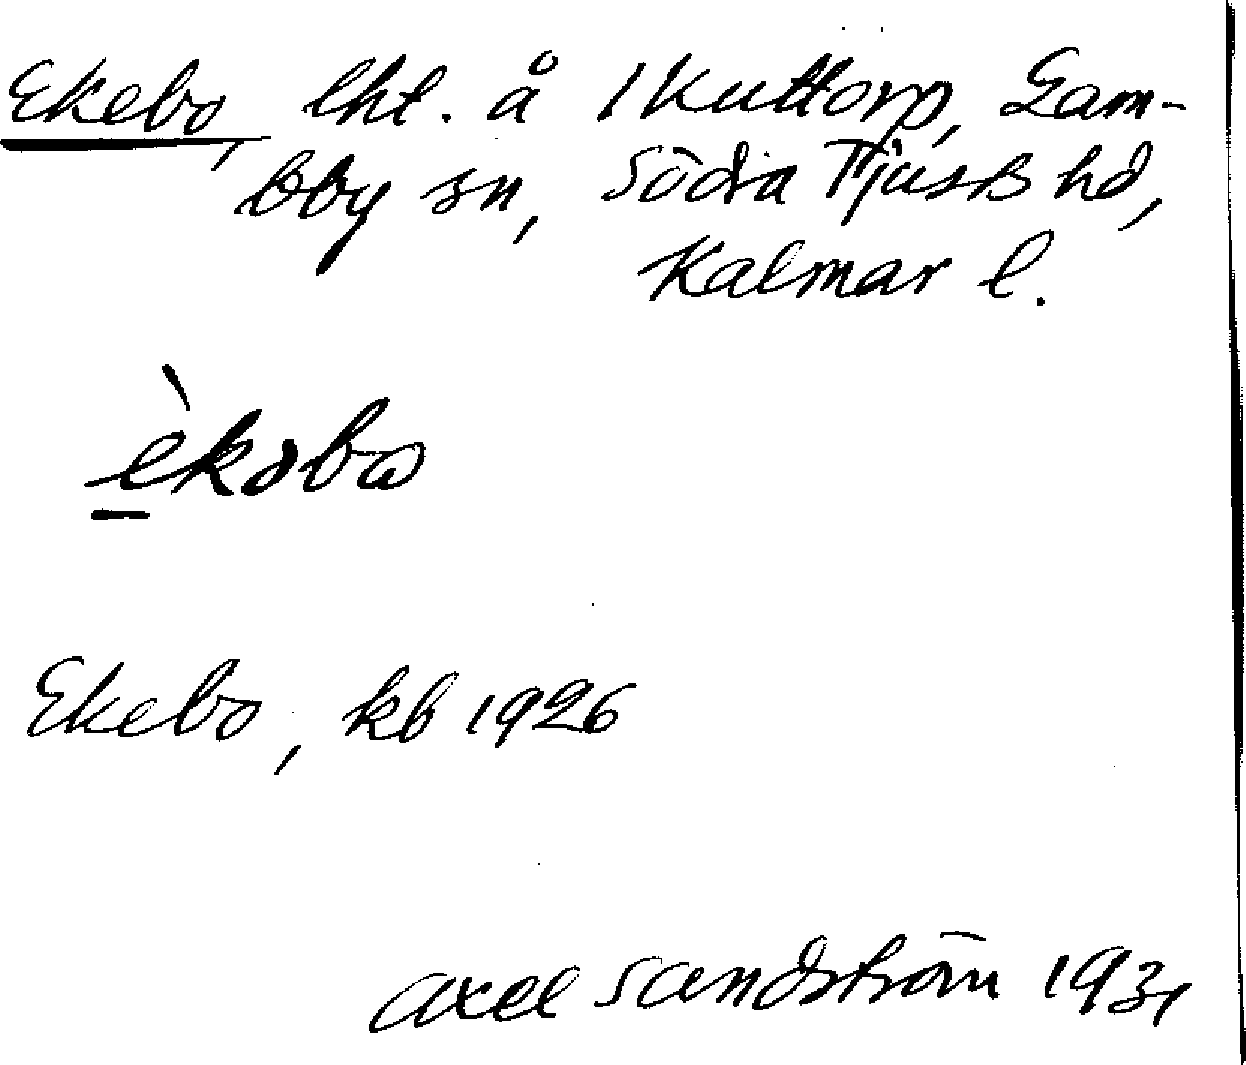 Ekebo, lht. å 1 Kuttorp, Gam-
bby sn, Södra Tjusts hd,
Kalmar l.
èkəbω
Ekebo, kb 1926
Axel Sandström 1931